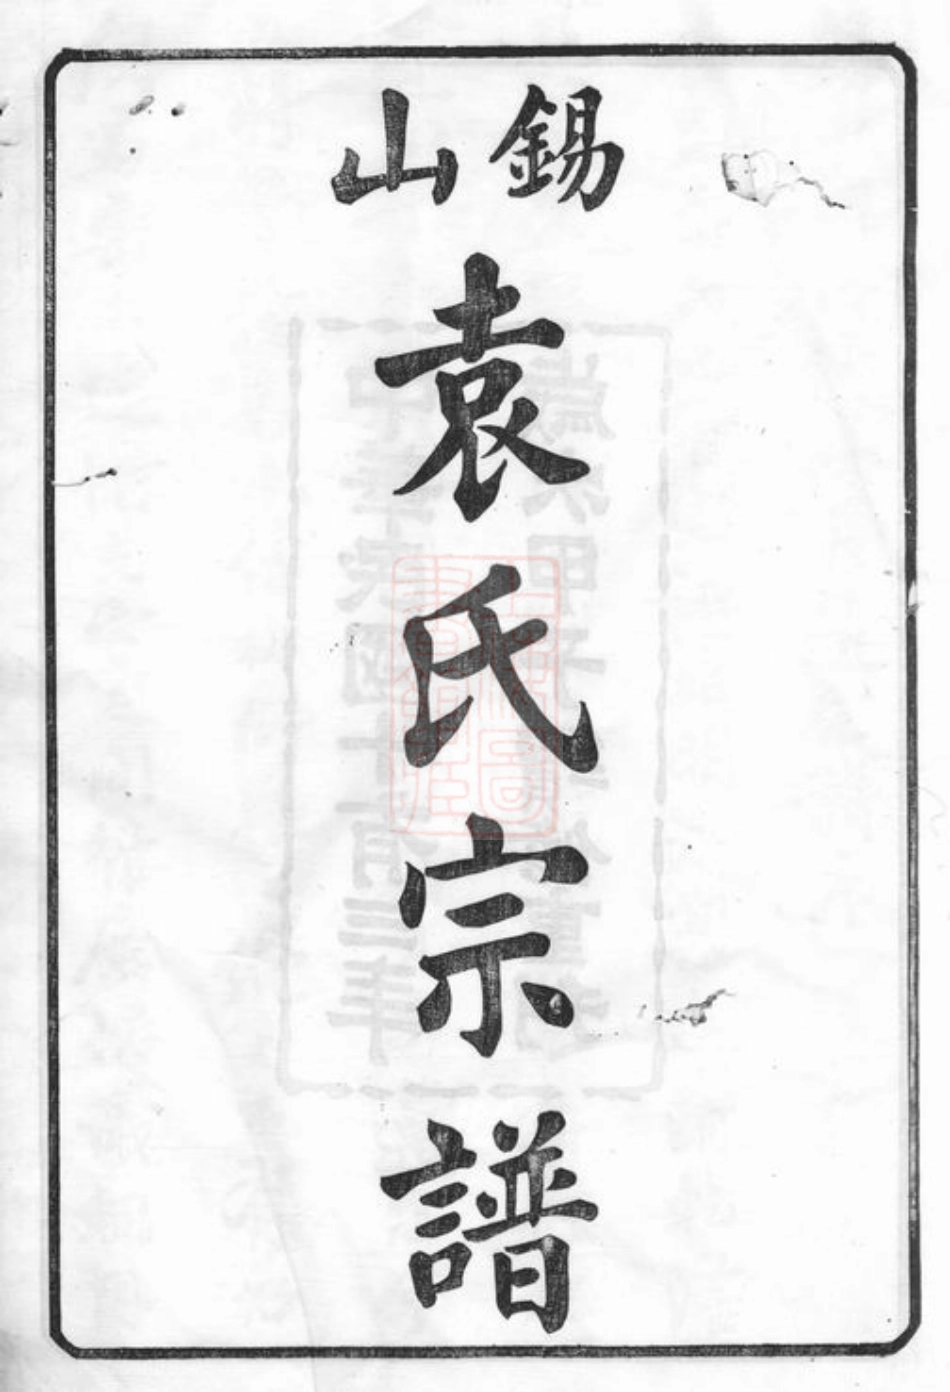 錫山
袁氏宗譜